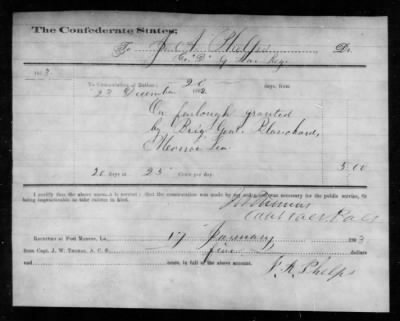 The Confederate States,
To J. A. Phelps Dr.
Co. "D"
1863.
To Commutation of Rations 20 days, from
23 December 1862
On furlough granted
by Brig. Genl. Blanchard,
Monroe La
20 days at 25 Cents per day. 5.00
I certify that the above account is correct; that the commutation was made by me and was necessary for the public service, it
being impracticable to take rations in kind.
J W Thomas
Received at Post Monroe, La., 17 January 1863
from Capt. J. W. Thomas, A. C. S., five dollars
and cents, in full of the above account.
J. A. Phelps